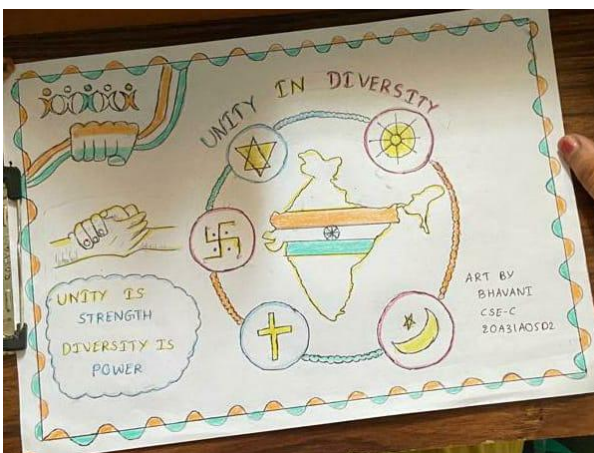 UNITY IN DIVERSITY
UNITY IS
STRENGTH
DIVERSITY IS
POWER
ART BY
BHAVANI
CSE-C
20A31A05D2